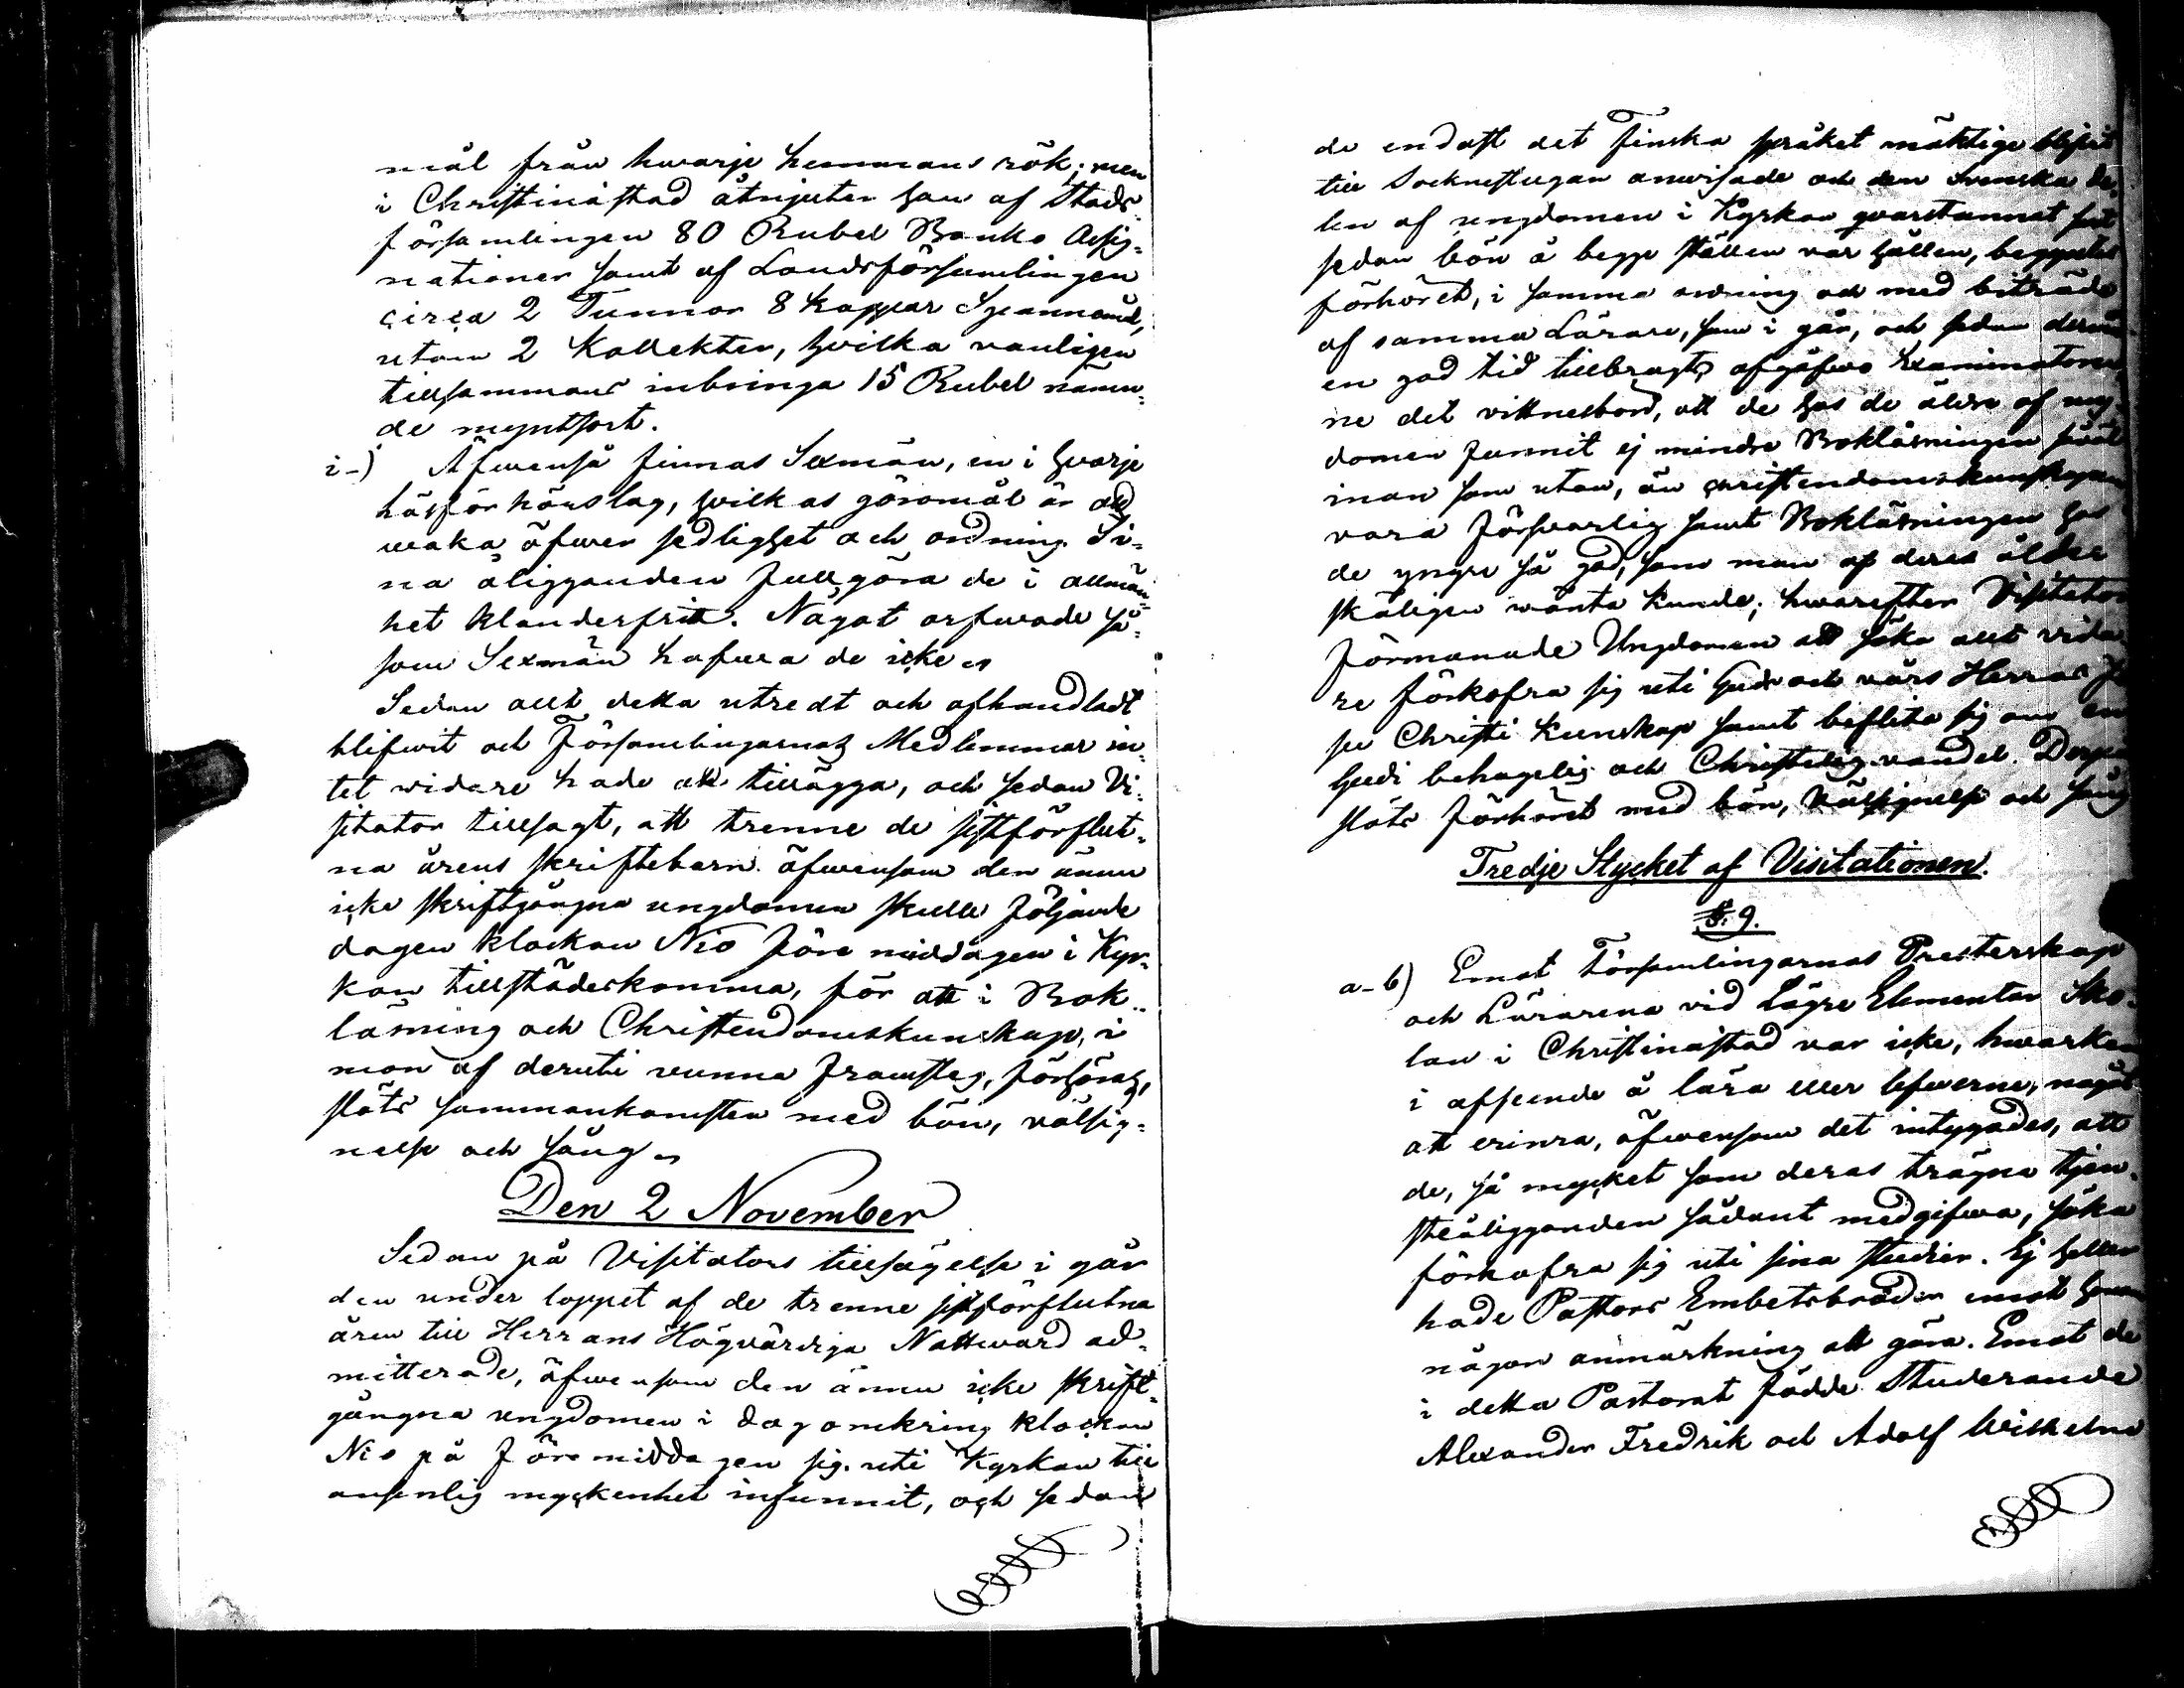 mål från hwarje hemmans rök; men
i Christinæstad åtnjuter han af Stads-
församlingen 80 Rubel Banko Assig-
nationer samt af Landsförsamlingen
circa 2 Tunnor 8 kappar Spannmål,
utom 2 Kollekter, hvilka vanligen
tillsammans inbringa 15 Rubel nämn-
de myntsort.
i-) Äfwenså finnas Sexmän, en i hvarje
läsförhörslag, hvilkas göromål är att
waka öfwer sedlighet och ordning. Si-
na åligganden fullgöra de i allmän-
het klanderfritt. Något arfwode så-
som Sexmän hafwa de icke
Sedan allt detta utredt och afhandladt
blifwit och Församlingarnas Medlemmar in-
tet widare hade att tillägga, och sedan Vi-
sitator tillsagt, att trenne de sistförflut-
na årens skriftebarn äfwensom den ännu
icke skriftgångna ungdomen skulle följande
dagen klockan Nio före middagen i Kyr-
kan tillstädeskomma, för att i Bok-
läsning och Christendomskunskap, i
mon af deruti wunna framsteg, förhöras,
slöts sammankomsten med bön, välsig-
nelse och sång
Den 2 November
Sedan på Visitators tillsägelse i går
den under loppet af de trenne sistförflutna
åren till Herrans Högvärdiga Nattward ad-
mitterade, äfwensom den ännu icke skrift-
gångna ungdomen i dag omkring klockan
Nio på Föremiddagen sig uti Kyrkan till
ansenlig myckenhet infunnit, och sedan
de endast det Finska språket mäktige blifvit
till Sockneстugan anwisade och den Svenska de-
len af ungdomen i Kyrkan qvarstannat samt
sedan bön å begge ställen var hållen, begyntes
förhöret, i samma ordning och med biträde
af samma Lärare, som i går, och sedan dermed
en god tid tillbragts afgåfwo Examinatorer-
ne det vittnesbörd, att de hos de äldre af ung-
domen funnit ej mindre Bokläsningen såväl
innan som utan, än christendomskunskapen
vara försvarlig samt Bokläsningen hos
de yngre så god, som man af deras ålder
skäligen wänta kunde; hwarefter Visitator
förmanade Ungdomen att söka allt vida-
re förkofra sig uti Guds och vårs Herras Je-
su Christi kunskap samt beflita sig om en
Gudi behagelig och Christelig vandel. Derpå
slöts Förhöret med bön, Välsignelse och sång
Tredje Stycket af Visitationen.
§. 9.
a-b) Emot Församlingarnas Presterskap
och Lärarena vid Lägre Elementar Sko-
lan i Christinæstad var icke, hwarken
i afseende å lära eller lefwerne, något
att erinra, äfwensom det intygades, att
de, så mycket som deras trägna tjen-
steåligganden sådant medgifwa, söka
förkofra sig uti sina studier. Ej heller
hade Pastors Embetsbröder emot honom
någon anmärkning att göra. Emot de
i detta Pastorat födde Studerande
Alexander Fredrik och Adolf Wilhelm